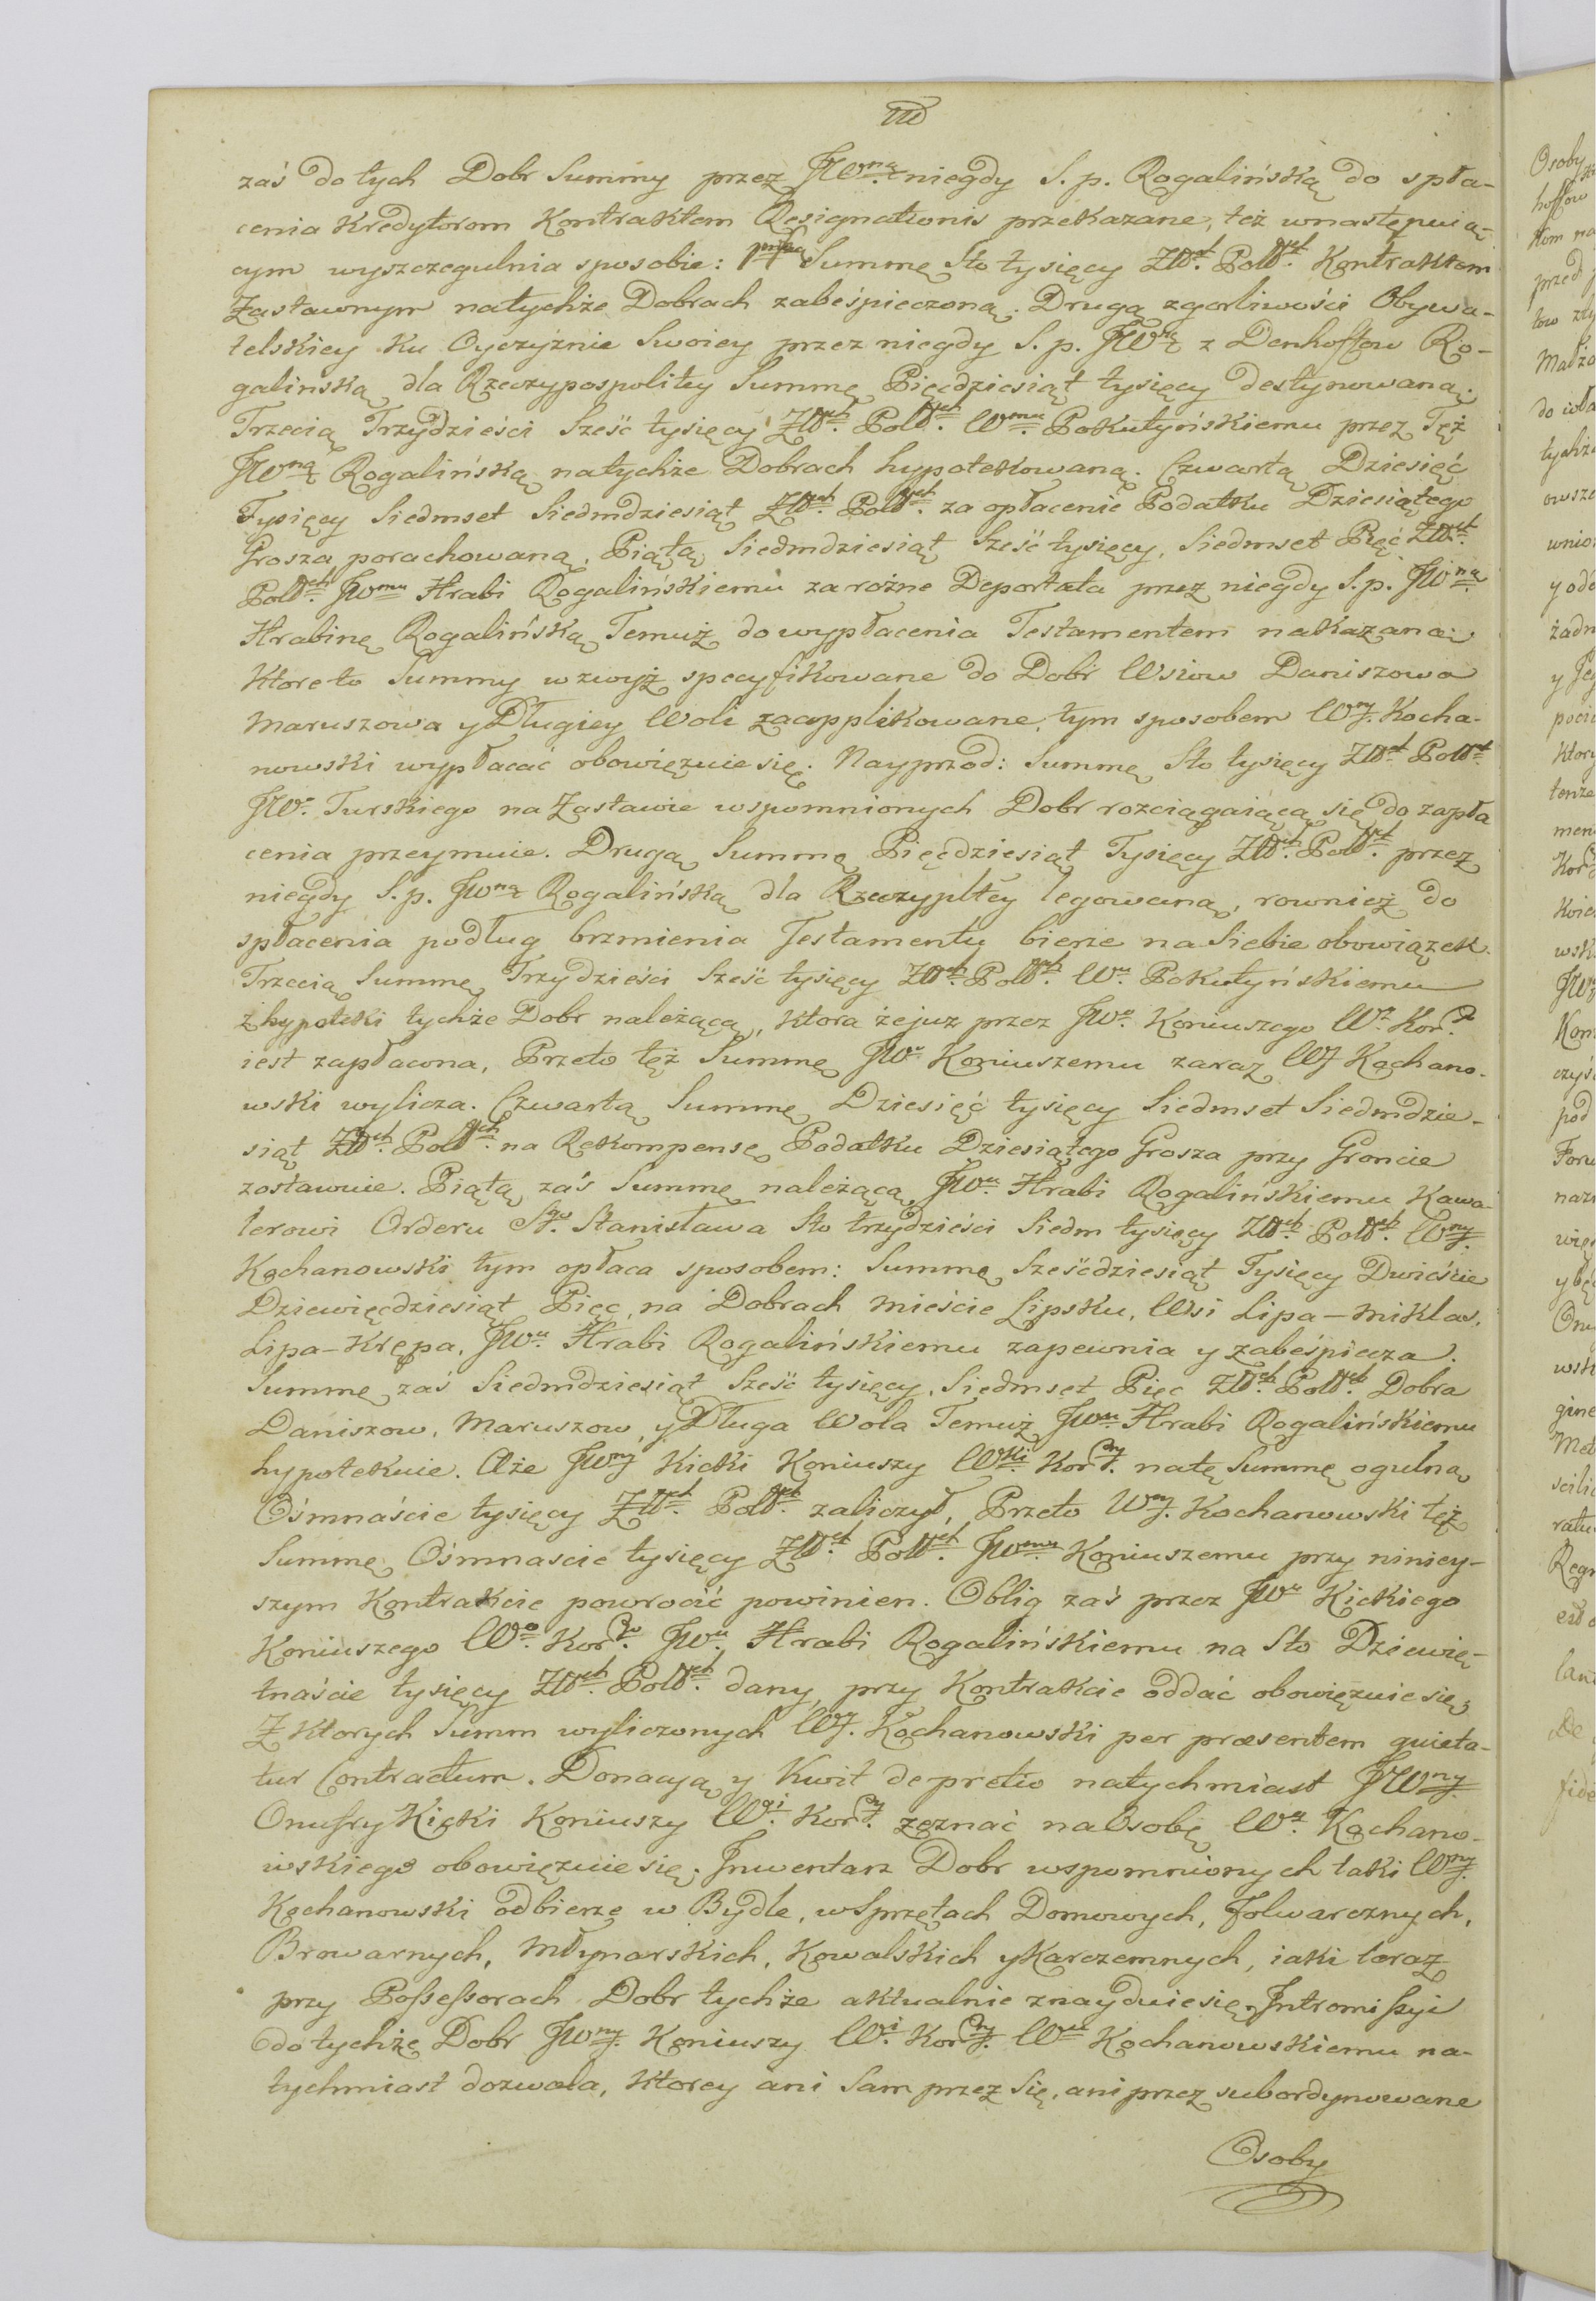 zaś do tych Dobr Summy przez JWną niegdy S. p. Rogalińską do spła-
cenia Kredytorom Kontraktem Resignationis przekazane, też wnastępuią-
cym wyszczegulnia sposobie: Summę Sto tysięcy Złłch Polłch Kontraktem
Zastawnym natychże Dobrach zabeśpieczoną. Drugą zgorliwości Obywa-
telskiey ku Oyczyźnie Swoiey przez niegdy S. p. JWną z Denhoffow Ro-
galińską dla Rzeczypospolitey Summę Pięćdziesiąt tysięcy destynowaną.
Trzecią Trzydzieści Sześć tysięcy Złłch Polłch Wmu Pokutyńskiemu przez Tęż
JWną Rogalińską natychże Dobrach hypotekowaną. Czwartą Dziesięć
Tysięcy Siedmset Siedmdziesiąt Złłch Polłch za opłacenie Podatku Dziesiątego
Grosza porachowaną, Piątą Siedmdziesiąt Sześć tysięcy, Siedmset Pięć Złłch
Polłch JWmu Hrabi Rogalińskiemu za rożne Deportata przez niegdy S. p. JWną
Hrabinę Rogalińską Temuż do wypłacenia Testamentem nakazaną;
Ktore to Summy wzwyż specyfikowane do Dobr Wsiow Daniszowa
Maruszowa y Długiey Woli zaapplikowane, tym sposobem Wny Kocha-
nowski wypłacać obowięzuie się. Nayprzod: Summę Sto tysięcy Złłch Polłch
JWo Turskiego na Zastawie wspomnionych Dobr rozciągaiącą się do zapła
cenia przeymuie. Drugą Summę Pięćdziesiąt Tysięcy Złłch Polłch przez
niegdy S. p. JWną Rogalińską dla Rzeczypltey legowaną, rownież do
spłacenia podług brzmienia Testamentu bierze na Siebie obowiązek.
Trzecią Summę Trzydzieści Sześć tysięcy Złłch Polłch Wu Pokutyńskiemu
z hypoteki tychże Dobr należącą, ktora że już przez JWo Koniuszego Wo Kor.
iest zapłacona, Przeto tęż Summę JWu Koniuszemu zaraz WJ Kochano-
wski wylicza. Czwartą Summę Dziesięć tysięcy Siedmset Siedmdzie-
siąt Złłch Polłch na Rekompensę Podatku Dziesiątego Grosza przy Groncie
zostawuie. Piątą zaś Summę należącą JWu Hrabi Rogalińskiemu Kawa-
lerowi Orderu Sgo Stanisława Sto trzydzieści Siedm tysięcy Złłch Polłch Wny
Kochanowski tym opłaca sposobem: Summę Sześćdziesiąt Tysięcy Dwieście
Dziewięćdziesiąt Pięć, na Dobrach Mieście Lipsku, Wsi Lipa-Miklas,
Lipa-Krępa, JWu Hrabi Rogalińskiemu zapewnia y zabeśpiecza.
Summę zaś Siedmdziesiąt Sześć tysięcy, Siedmset Pięć Złłch Polłch Dobra
Daniszow, Maruszow, y Długa Wola Temuż JWu Hrabi Rogalińskiemu
hypotekuie. Aże JWny Kicki Koniuszy Wki Korny na tę Summę ogulną
Ośmnaście tysięcy Złłch Polłch zaliczył, Przeto Wny Kochanowski tęż
Summę Ośmnaście tysięcy Złłch Polłch JWmu Koniuszemu przy niniey-
szym Kontrakcie powrocić powinien. Oblig zaś przez JWo Kickiego
Koniuszego Wo Kor. JWu Hrabi Rogalińskiemu na Sto Dziewię-
tnaście tysięcy Złłch Polłch dany, przy Kontrakcie oddać obowięzuie się,
Z ktorych Summ wyliczonych WJ. Kochanowski per præsentem quieta-
tur Contractum. Donacyą y Kwit de pretio natychmiast JWny
Onufry Kicki Koniuszy Wgi Korny zeznać na Osobę Wo Kochano-
wskiego obowięzuie się. Inwentarz Dobr wspomnionych taki Wny
Kochanowski odbierze w Bydle, w Sprzętach Domowych, Folwarcznych,
Browarnych, Młynarskich, Kowalskich y Karczemnych, iaki teraz
przy Possessorach Dobr tychże aktualnie znayduie się, Intromissyi
do tychże Dobr JWny Koniuszy Wi Korny Wu Kochanowskiemu na-
tychmiast dozwala, Ktorey ani Sam przez Się, ani przez subordynowane
Osoby